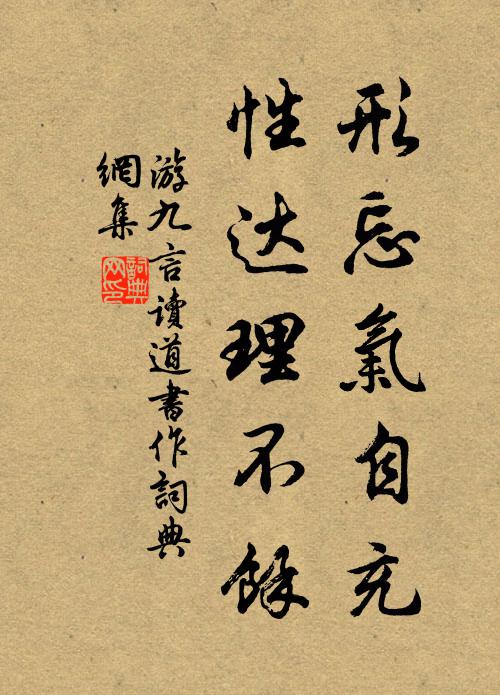 形忘氣自充
性达理不餘
游九言讀道書作詞典
網集
詞典
网印